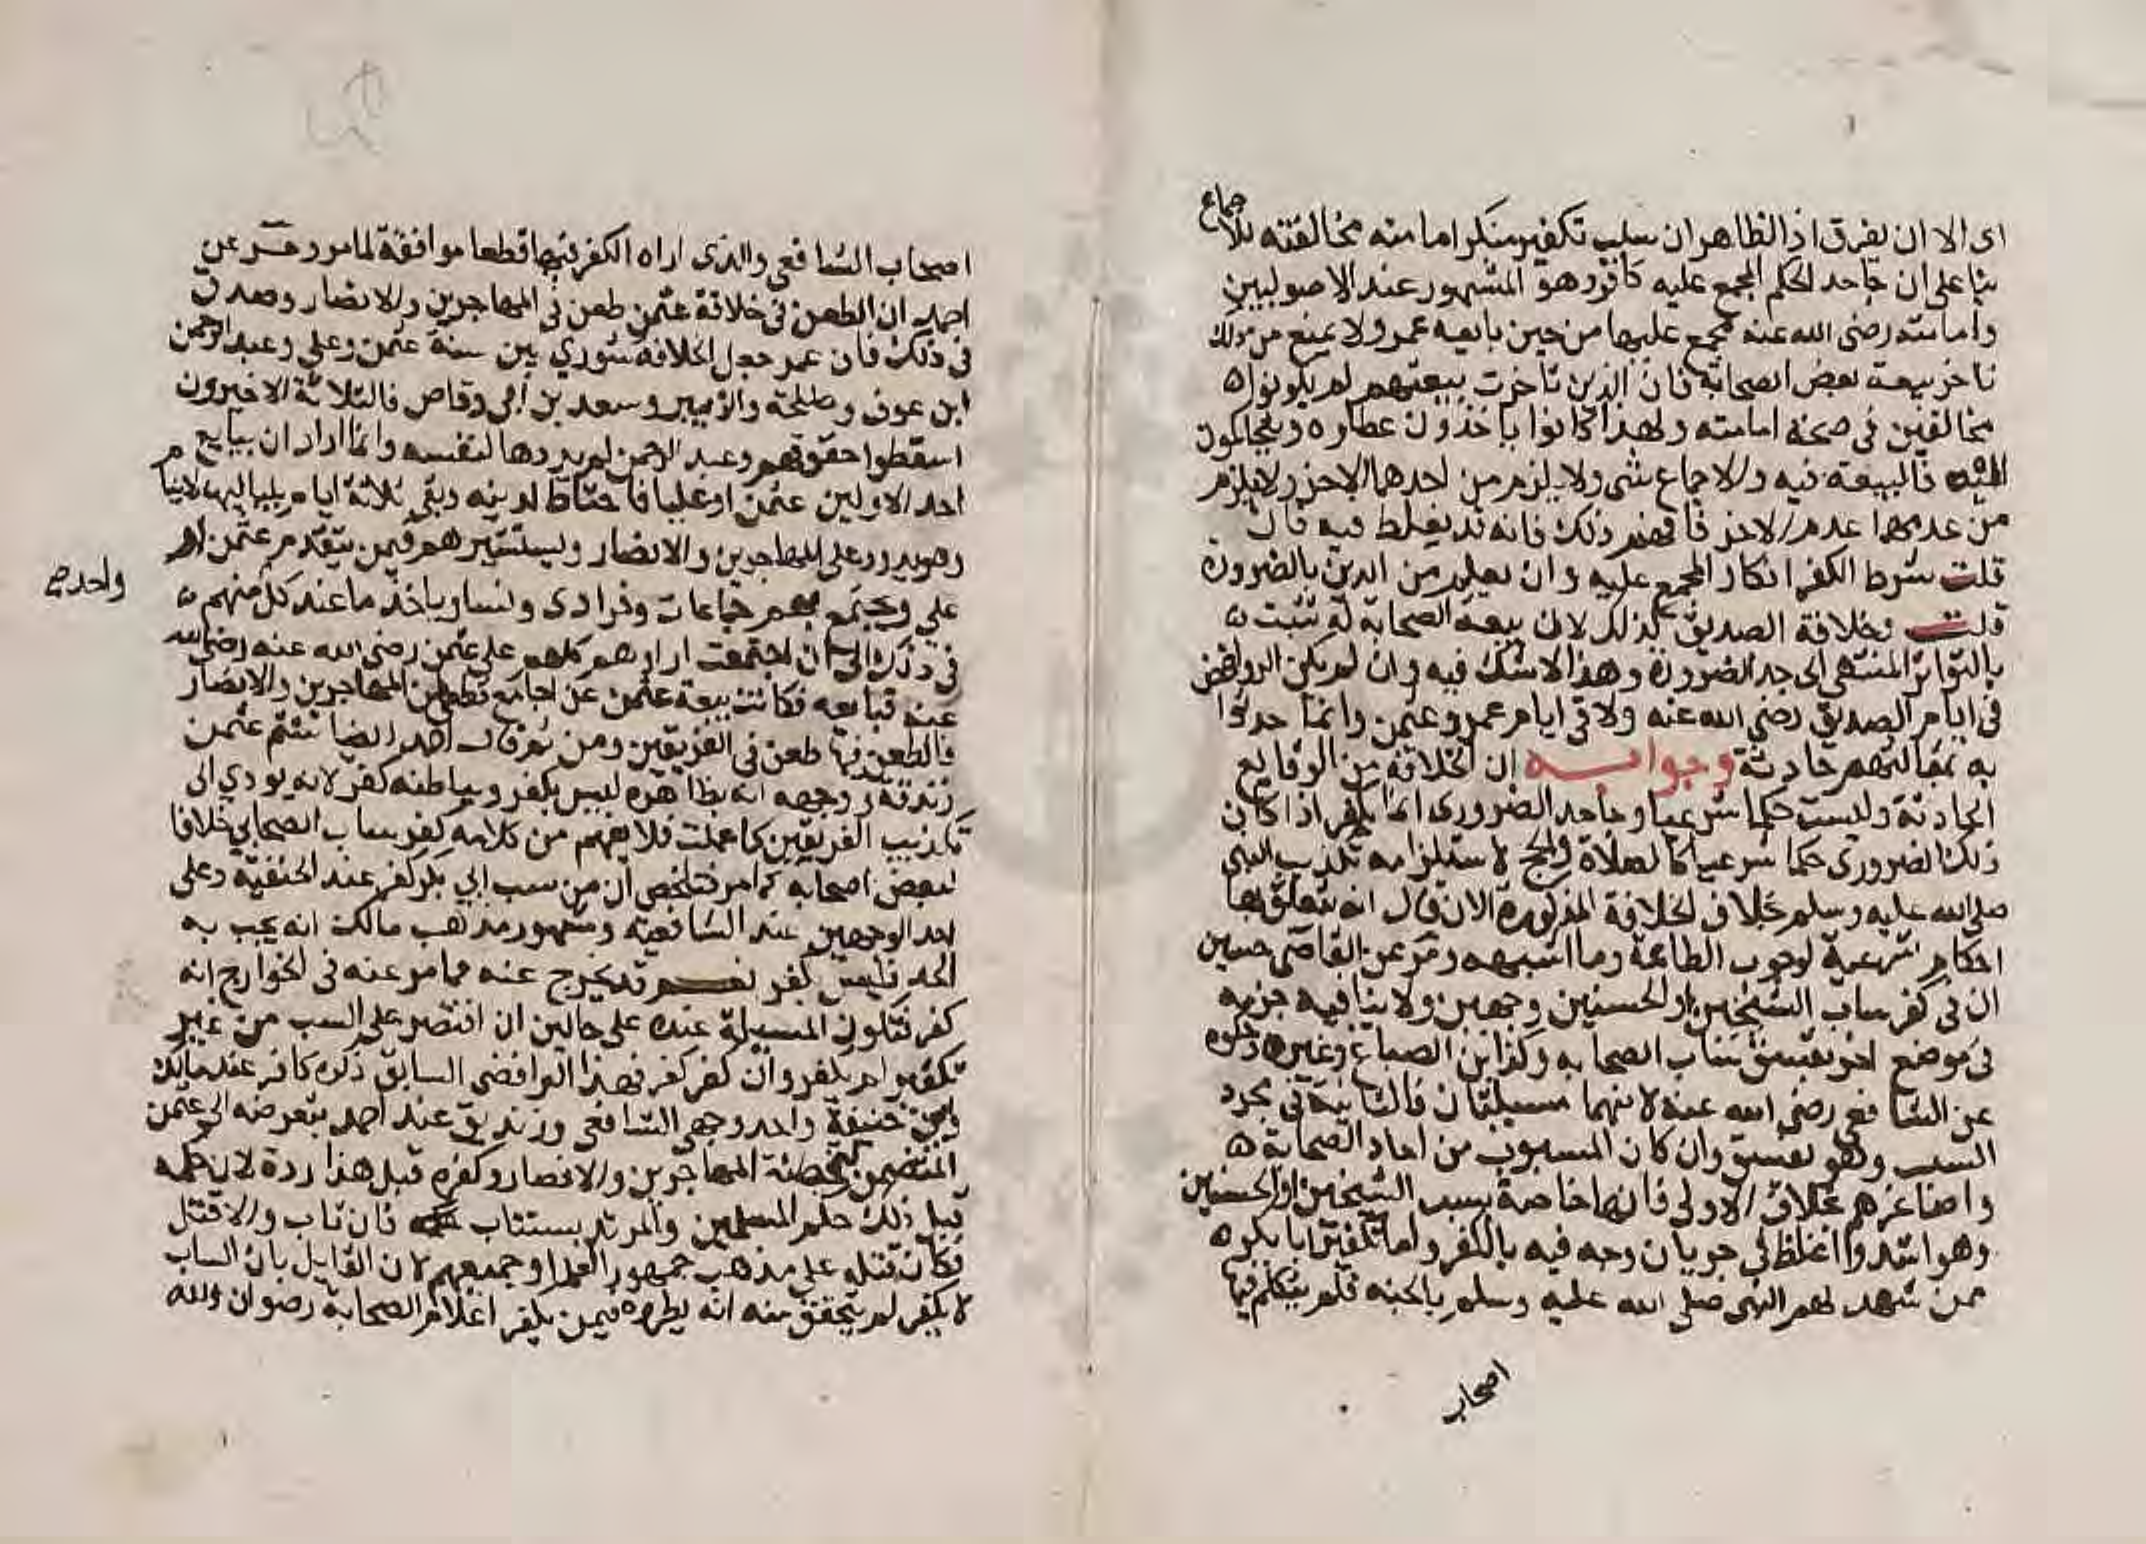 اى الا ان يفرق اذ الظاهر ان سبب تكفير منكر امامته مخالفته للاجماع
بنا على ان جاحد الحكم المجمع عليه كافر وهو المشهور عند الاصوليين
وامامته رضى الله عنه مجمع عليها من حين بايعه عمر ولا يمنع من ذلك
تاخر بيعة بعض الصحابة فان الذين تاخرت بيعتهم لم يكونوا
مخالفين فى صحة امامته ولهذا كانوا ياخذون عطاره ويتحاكمون
اليه فالبيعة فيه والاجماع شى ولا يلزم من احدهما الاخر ولا يلزم
من عدمهما عدم الاخر فافهم ذلك فانه قد يغلط فيه فان
قلت شرط الكفر انكار المجمع عليه وان يعلم من الدين بالضرورة
قلت وخلافة الصديق كذلك لان بيعة الصحابة له تثبت
بالتواتر المنتهى الى حد الضرورة وهذا لا شك فيه وان لم يكن الروافض
فى ايام الصديق رضى الله عنه ولا فى ايام عمر وعثمن وانما حدثوا
به فمقالتهم حادثة وجوابه ان الخلافة من الوقايع
الحادثة وليست حكما شرعيا وجاحد الضرورى انما يكفر اذا كان
ذلك الضرورى حكما شرعيا كالصلاة والحج لاستلزامه تكذيب النبى
صلى الله عليه وسلم بخلاف الخلافة المذكورة الا ان يقال انه يتعلق بها
احكام شرعية لوجوب الطاعة وما اشبهه ومر عن القاضى حسين
ان فى كفر ساب الشيخين او الحسنين وجهين ولا ينافيه جزمه
فى موضع اخر بفسق ساب الصحابه وكذا ابن الصباغ وغيره وحكوه
عن الشافعى رضى الله عنه لانهما مسيلتان فالثانية فى مجرد
السب وهو يفسق وان كان المسبوب من احاد الصحابة
واصاغرهم بخلاف الاولى فانها خاصة بسب الشيخين او الحسنين
وهو اشد واغلظ فى جريان وجه فيه بالكفر واما تكفير ابا بكر
ممن شهد لهم النبى صلى الله عليه وسلم بالجنة فلم يتكلم فيها
اصحاب
اصحاب الشافعى والذى اراه الكفر فيها قطعا موافقة لما مر ومر عن
احمد ان الطعن فى خلافة عثمن طعن فى المهاجرين والانصار وصدق
فى ذلك فان عمر جعل الخلافة شورى بين ستة عثمن وعلى وعبد الرحمن
ابن عوف وطلحة والزبير وسعد بن ابى وقاص فالثلاثة الاخيرون
اسقطوا حقوقهم وعبد الرحمن لم يردها لنفسه وانما اراد ان يبايع
احد الاولين عثمن او عليا فاحتاط لدينه وبقى ثلاثة ايام بلياليها لا ينام
وهو يدور على المهاجرين والانصار ويستشيرهم فيمن يتقدم عثمن او
على ويجتمع بهم جماعات وفرادى ونسا وياخذ ما عند كل منهم
واحد صح
فى ذلك الى ان اجتمعت اراوهم كلهم على عثمن رضى الله عنه رضى الله
عنه فبايعه فكانت بيعة عثمن عن اجماع قطعى من المهاجرين والانصار
فالطعن فيها طعن فى الفريقين ومن ثم قال احمد ايضا شتم عثمن
زندقة ووجهه انه بظاهره ليس بكفر وبباطنه كفر لانه يودي الى
تكذيب الفريقين كما علمت فلا يفهم من كلامه كفر ساب الصحابي خلافا
لبعض اصحابه كما مر فتلخص ان من سب ابي بكر كفر عند الحنفية وعلى
احد الوجهين عند الشافعية ومشهور مذهب مالك انه يجب به
الحد فليس بكفر نعم قد يخرج عنه مما مر عنه فى الخوارج انه
كفر فتكون المسيلة عنده على حالين ان اقتصر على السب من غير
تكفير لم يكفر وان كفر كفر فهذا الرافضى السابق ذكره كافر عند مالك
وابى حنيفة واحد وجهى الشافعى وزنديق عند احمد بتعرضه الى عثمن
المتضمن لتخطئة المهاجرين والانصار وكفره قبل هذا ردة لان حكمه
قبل ذلك حكم المسلمين والمرتد يستتاب فان تاب والا قتل
فكان قتله على مذهب جمهور العلما او جميعهم لان القايل بان الساب
لا يكفر لم يتحقق منه انه يطرده فيمن يكفر اعلام الصحابة رضوان الله